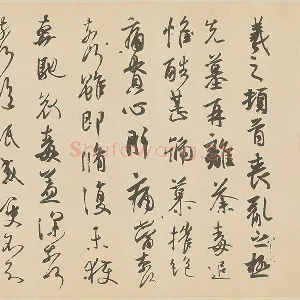 羲之頓首喪亂之極
先墓再離荼毒追
惟酷甚號慕摧絕
痛貫心肝痛當奈
何奈何雖即脩復未獲
奔馳哀毒益深奈何
奈何臨紙感哽不知